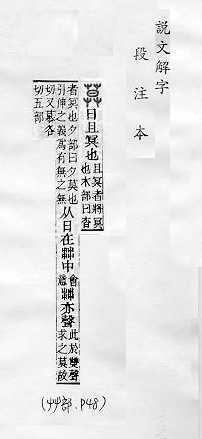 説文解字
段注本
莫 日且冥也 且冥者將冥也木部曰杳
者冥也夕部曰夕莫也引伸之義爲有無之無 从日在茻中 會意 茻亦聲 此於雙聲求之莫故
切又慕各切五部
(茻部.P48)